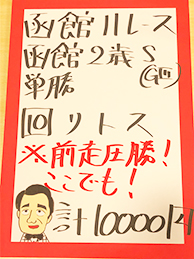 函館11レース
函館2歳S
単勝 (GⅢ)
10 リトス
※前走圧勝!
ここでも!
計10000円